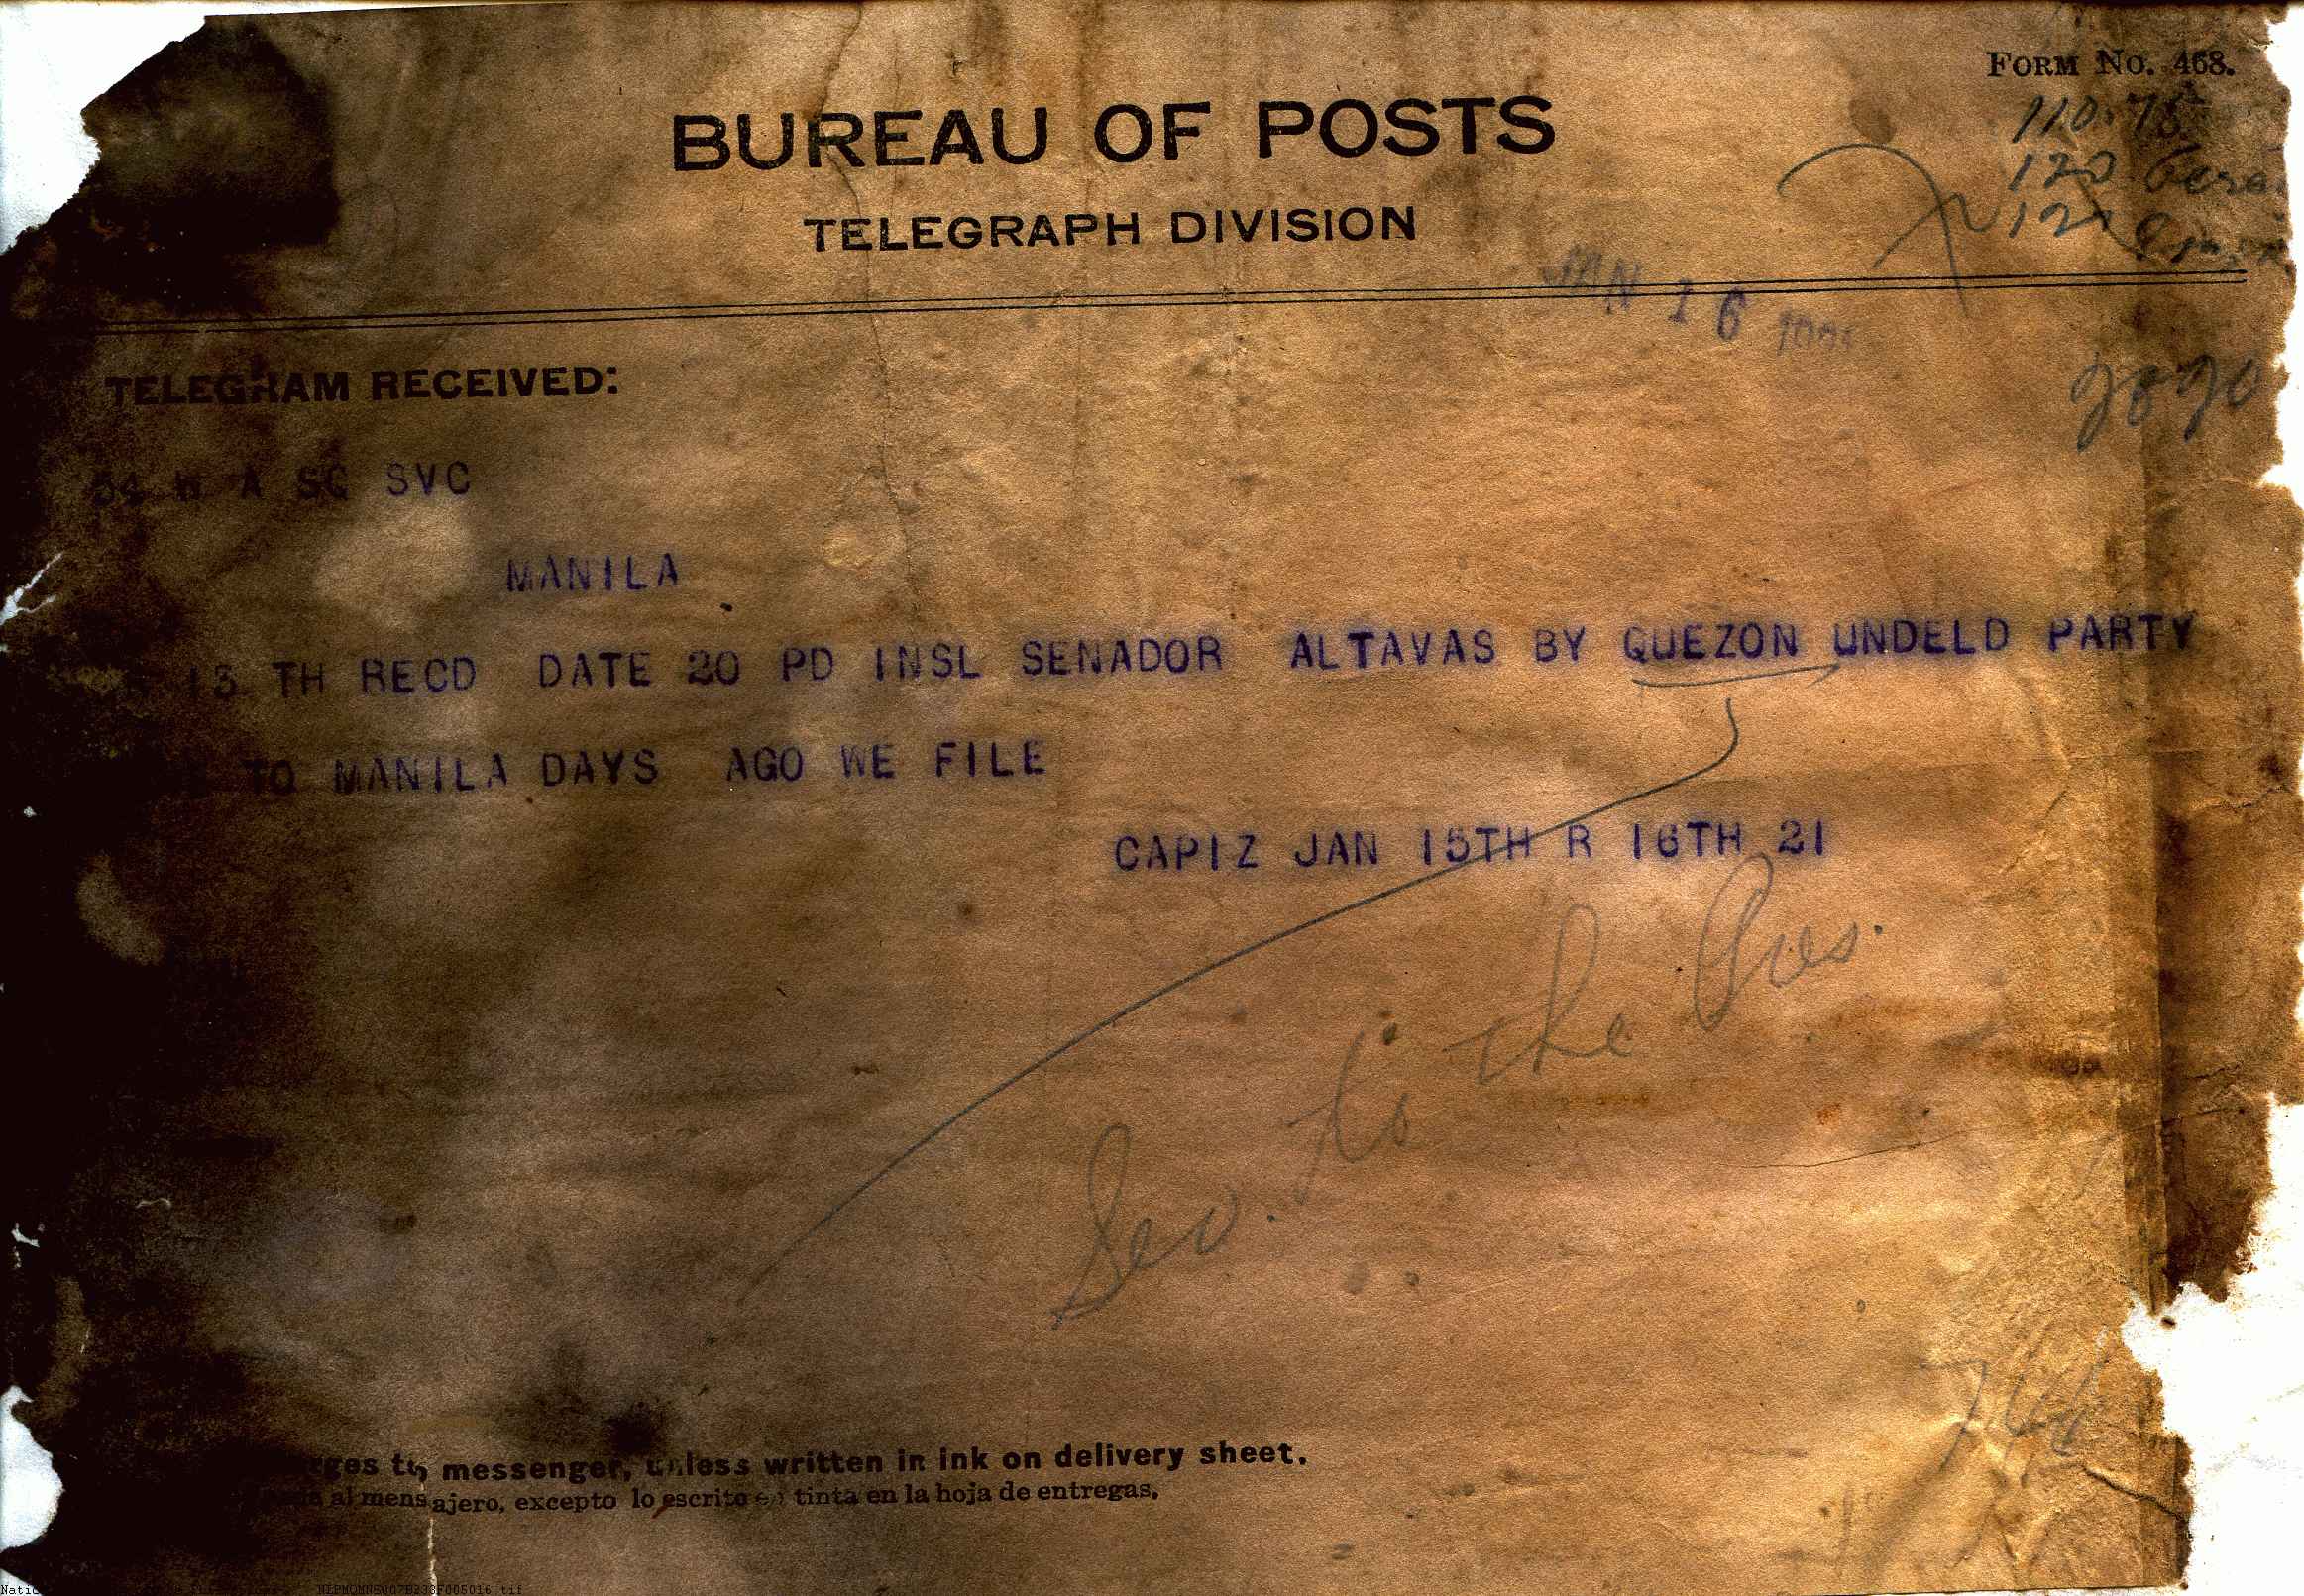 FORM NO. 468.
110.75
BUREAU OF POSTS
120
TELEGRAPH DIVISION
JAN 16
TELEGRAM RECEIVED:
SVC
MANILA
13 TH RECD DATE 20 PD INSL SENADOR ALTAVAS BY QUEZON UNDELD PARTY
TO MANILA DAYS AGO WE FILE
CAPIZ JAN 15TH R 16TH 21
Sev. to the Pres.
messenger, unless written in ink on delivery sheet.
al mensajero, excepto lo escrito en tinta en la hoja de entregas.